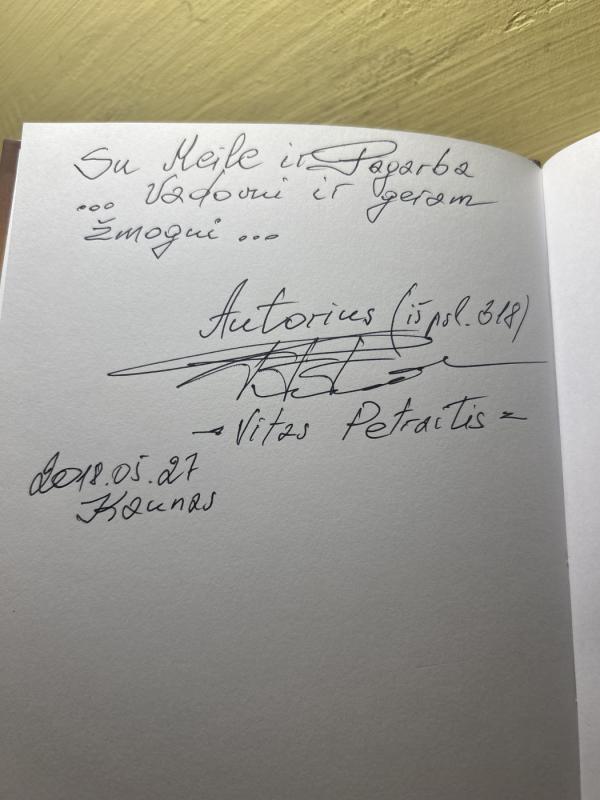 Su Meile ir Pagarba
... Vadovui ir geram
žmogui ...
Autorius (iš psl. 318)
- Vitas Petraitis -
2018.05.27
Kaunas